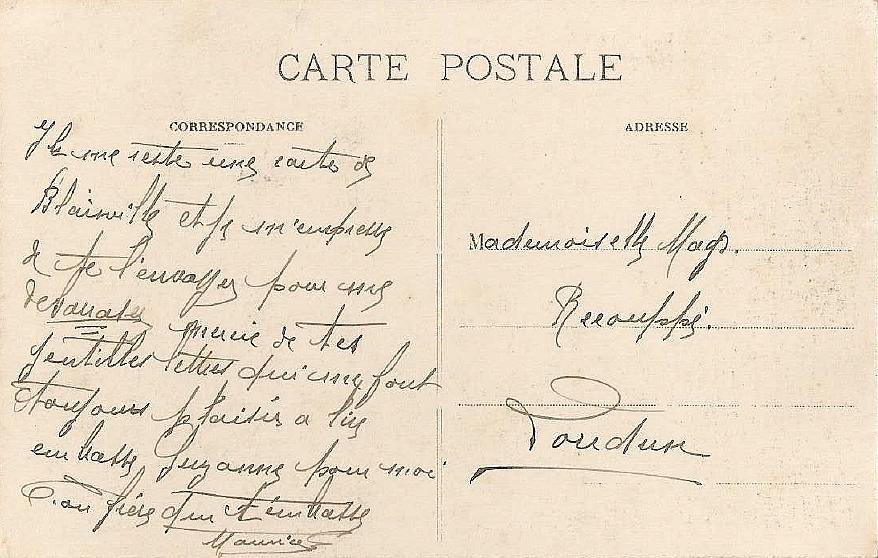 CARTE POSTALE
CORRESPONDANCE
Il me reste une carte de
Blainville et je m'empresse
de te l'envoyer pour me
merci de tes
gentilles lettres qui me font
toujours plaisir a lire
embrasse Suzanne pour moi
Ton frère qui t'embrasse
Maurice
ADRESSE
Mademoiselle Mag.
Recouppé.
Loudun